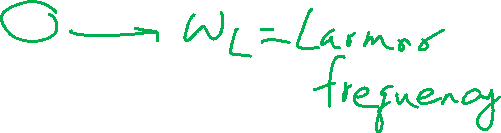 O → ω_L = Larmor
frequency